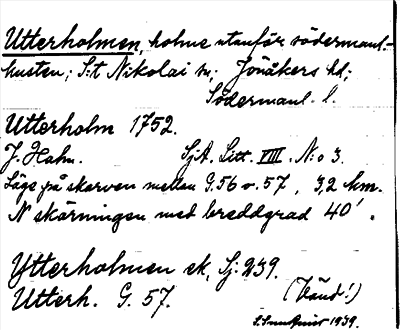 Utterholmen, holme utanför södermanl.-
kusten; S:t Nikolai sn; Jönåkers hd;
Södermanl. l.
Utterholm 1752.
J. Hahn. SjA. Litt. VIII. N:o 3.
Läge på skarven mellan G.56 o. 57, 3,2 km.
N skärningen med breddgrad 40'.
Ytterholmen ek, Sj. 239.
Utterh. G. 57. (Vänd!)
1939.